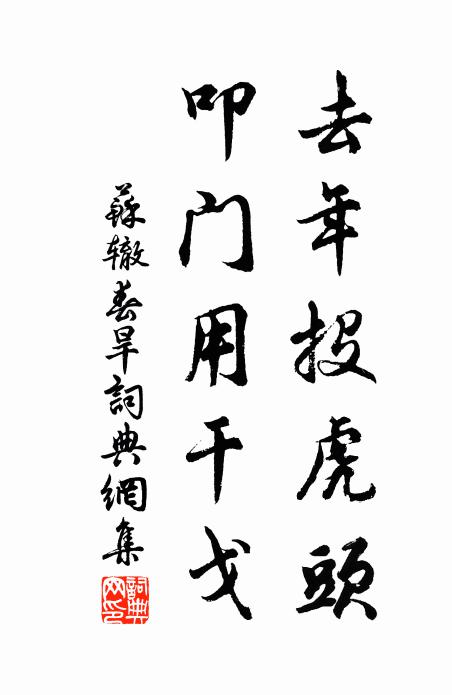 去年投虎頭
叩门用干戈
蘇辙春旱詞典網集
詞典网印